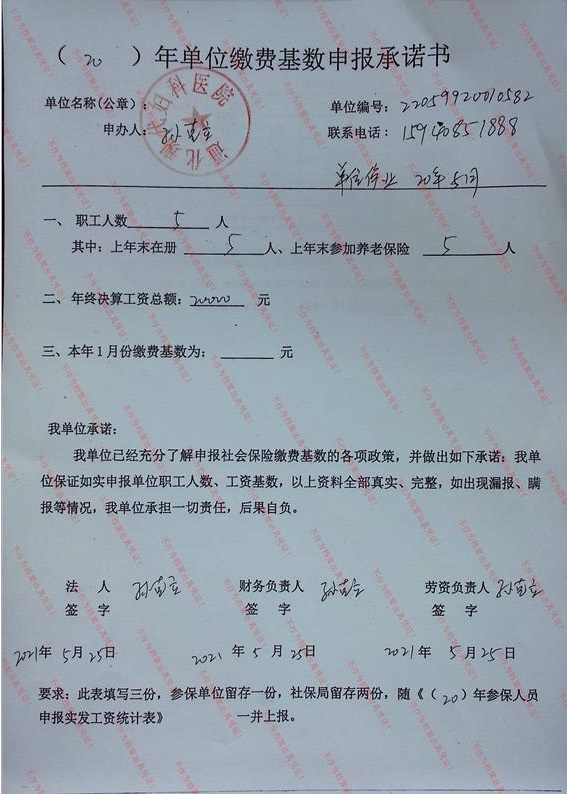 （ 20 ）年单位缴费基数申报承诺书
单位名称(公章)：
单位编号：22059920010582
申办人：孙
联系电话：15940851888
妇科医院
通化
单位停业 20年5月
一、 职工人数 5 人
其中：上年末在册 5 人、上年末参加养老保险 5 人
二、年终决算工资总额：20000 元
三、本年1月份缴费基数为： 元
我单位承诺：
我单位已经充分了解申报社会保险缴费基数的各项政策，并做出如下承诺：我单
位保证如实申报单位职工人数、工资基数，以上资料全部真实、完整，如出现漏报、瞒
报等情况，我单位承担一切责任，后果自负。
法 人 孙 财务负责人 孙 劳资负责人 孙
签 字 签 字 签 字
2021年 5月25日 2021年 5月 25日 2021年 5月25日
要求：此表填写三份，参保单位留存一份，社保局留存两份，随《（20）年参保人员
申报实发工资统计表》 一并上报。